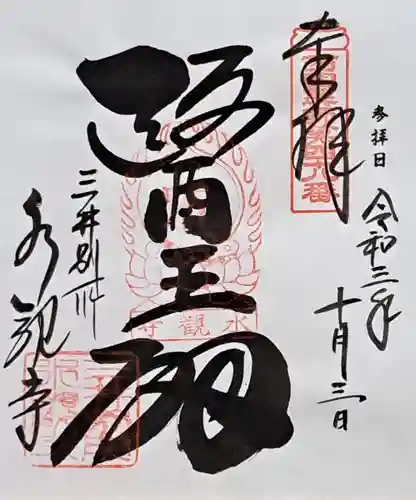 奉拝
参拝日
令和三年
十月三日
醫王殿
三井別所
水観寺
水觀寺